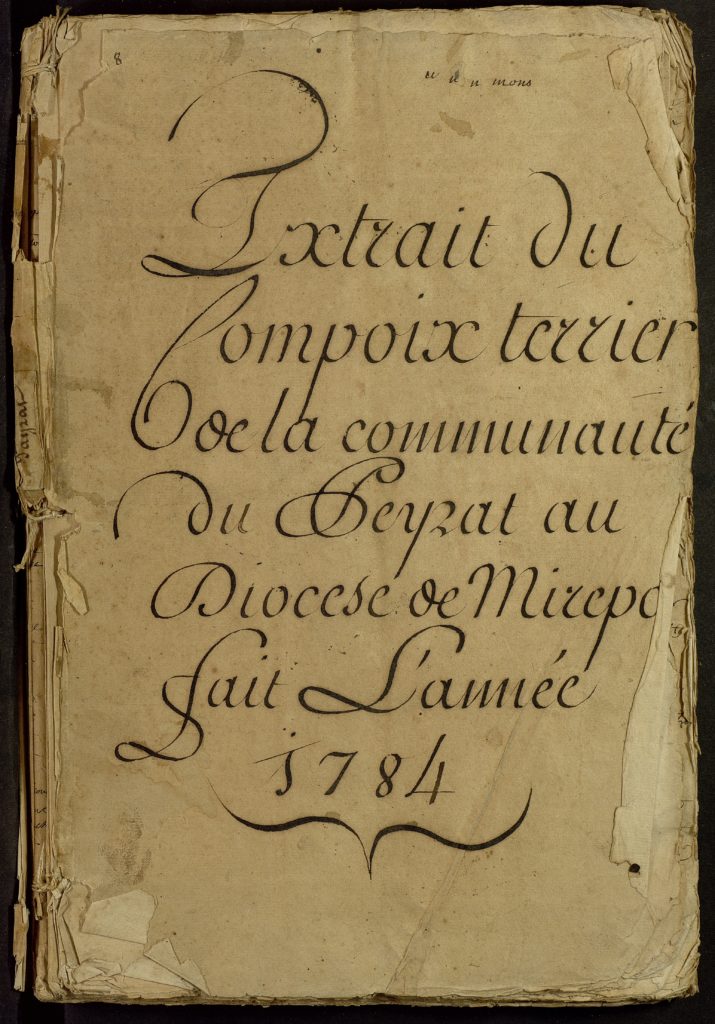 8
mons
Extrait du
Compoix terrier
de la communauté
du Peyrat au
Diocese de Mirepo
fait L'année
1784
Payrat